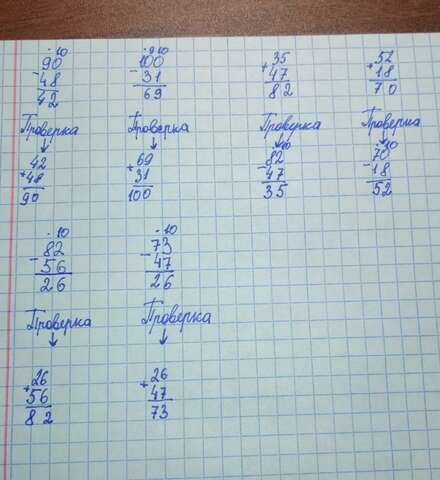 .10 .9 10
90 100 35 52
- 48 - 31 + 47 + 18
42 69 82 70
Проверка Проверка Проверка Проверка
.10 .10
42 69 82 70
+ 48 + 31 - 47 - 18
90 100 35 52
.10 .10
82 73
- 56 - 47
26 26
Проверка Проверка
26 26
+ 56 + 47
82 73